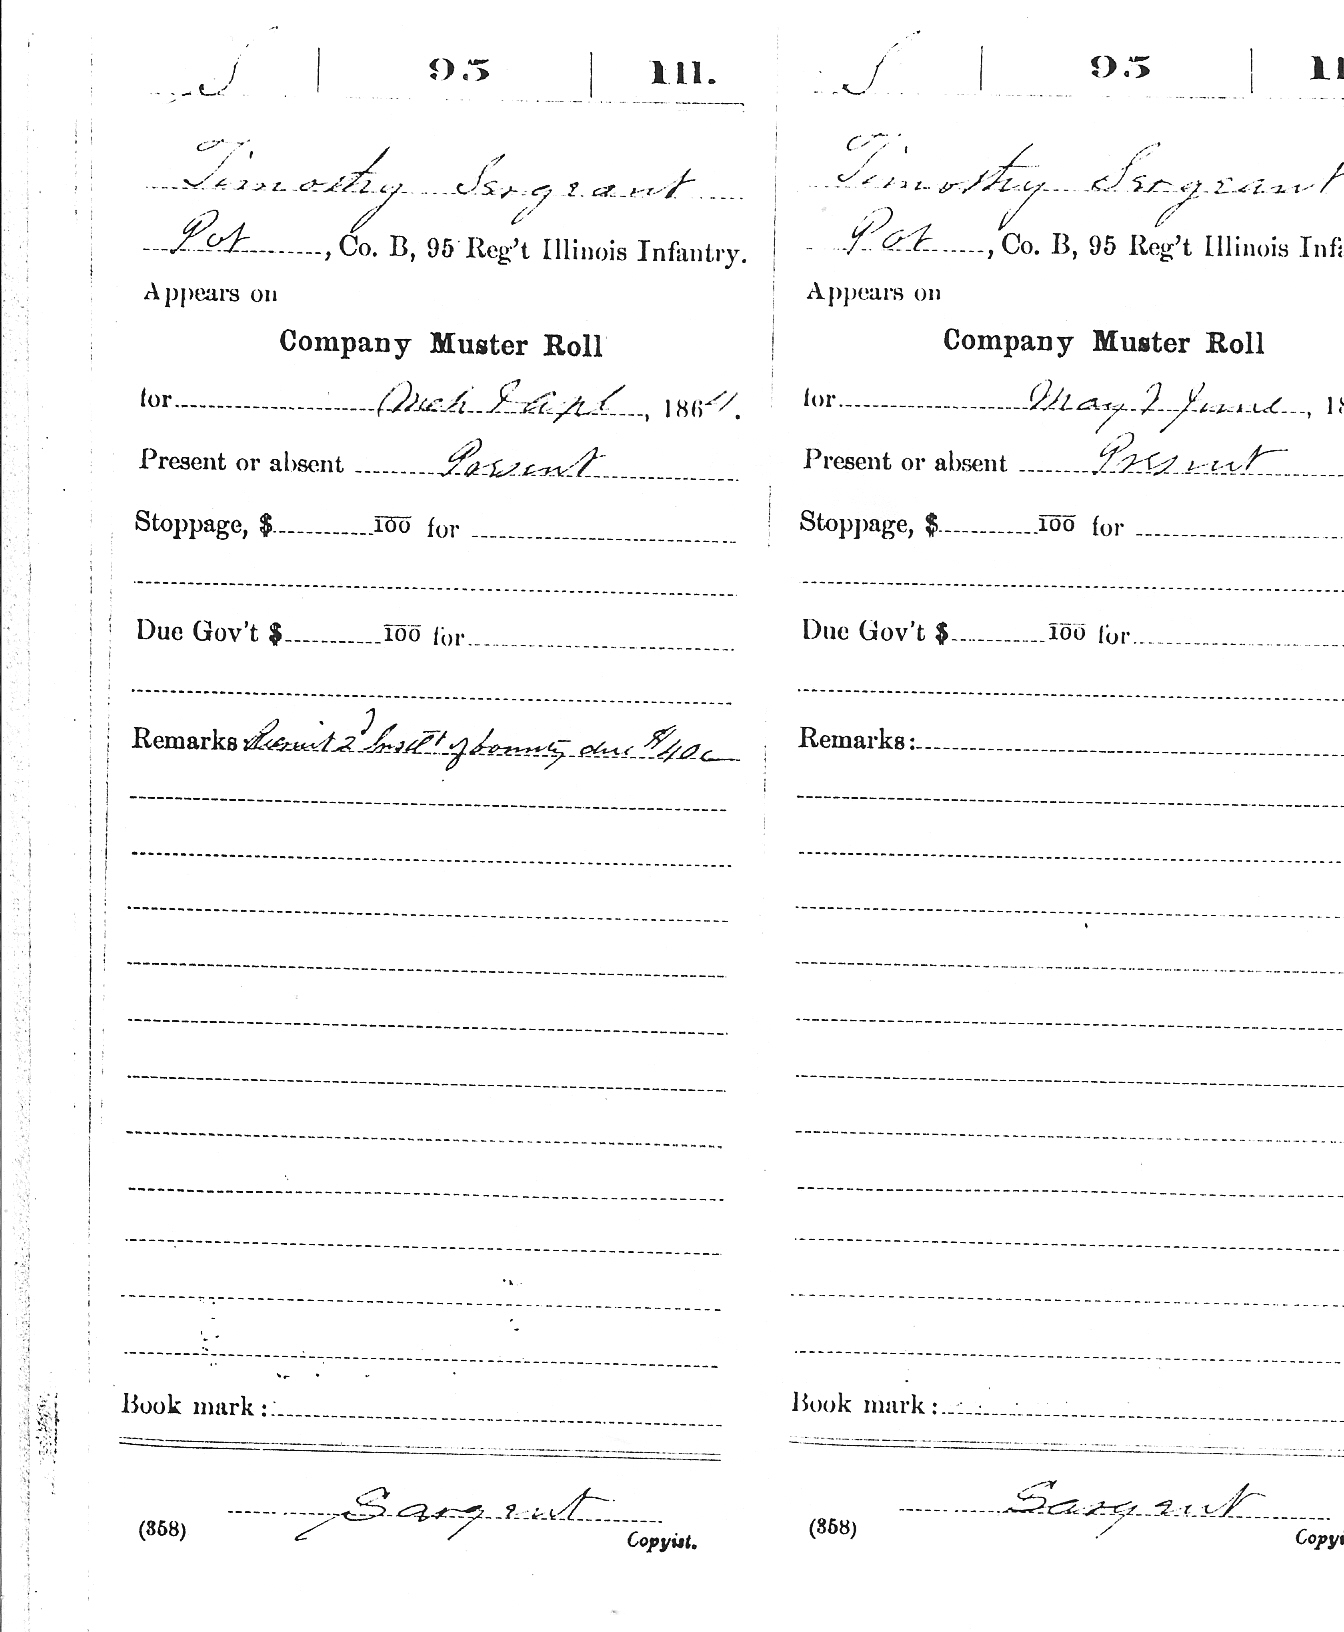 S | 95 | Ill.
Timothy Sergeant
Pvt, Co. B, 95 Reg't Illinois Infantry.
Appears on
Company Muster Roll
for Mch & Apl, 1864.
Present or absent Present
Stoppage, $ 100 for
Due Gov't $ 100 for
Remarks: Recruit 2 Instlt of bounty due $40
Book mark:
Sargent
(358) Copyist.
S | 95 | Il
Timothy Sergeant
Pvt, Co. B, 95 Reg't Illinois Infa
Appears on
Company Muster Roll
for May & June, 18
Present or absent Present
Stoppage, $ 100 for
Due Gov't $ 100 for
Remarks:
Book mark:
Sargent
(358) Copyi